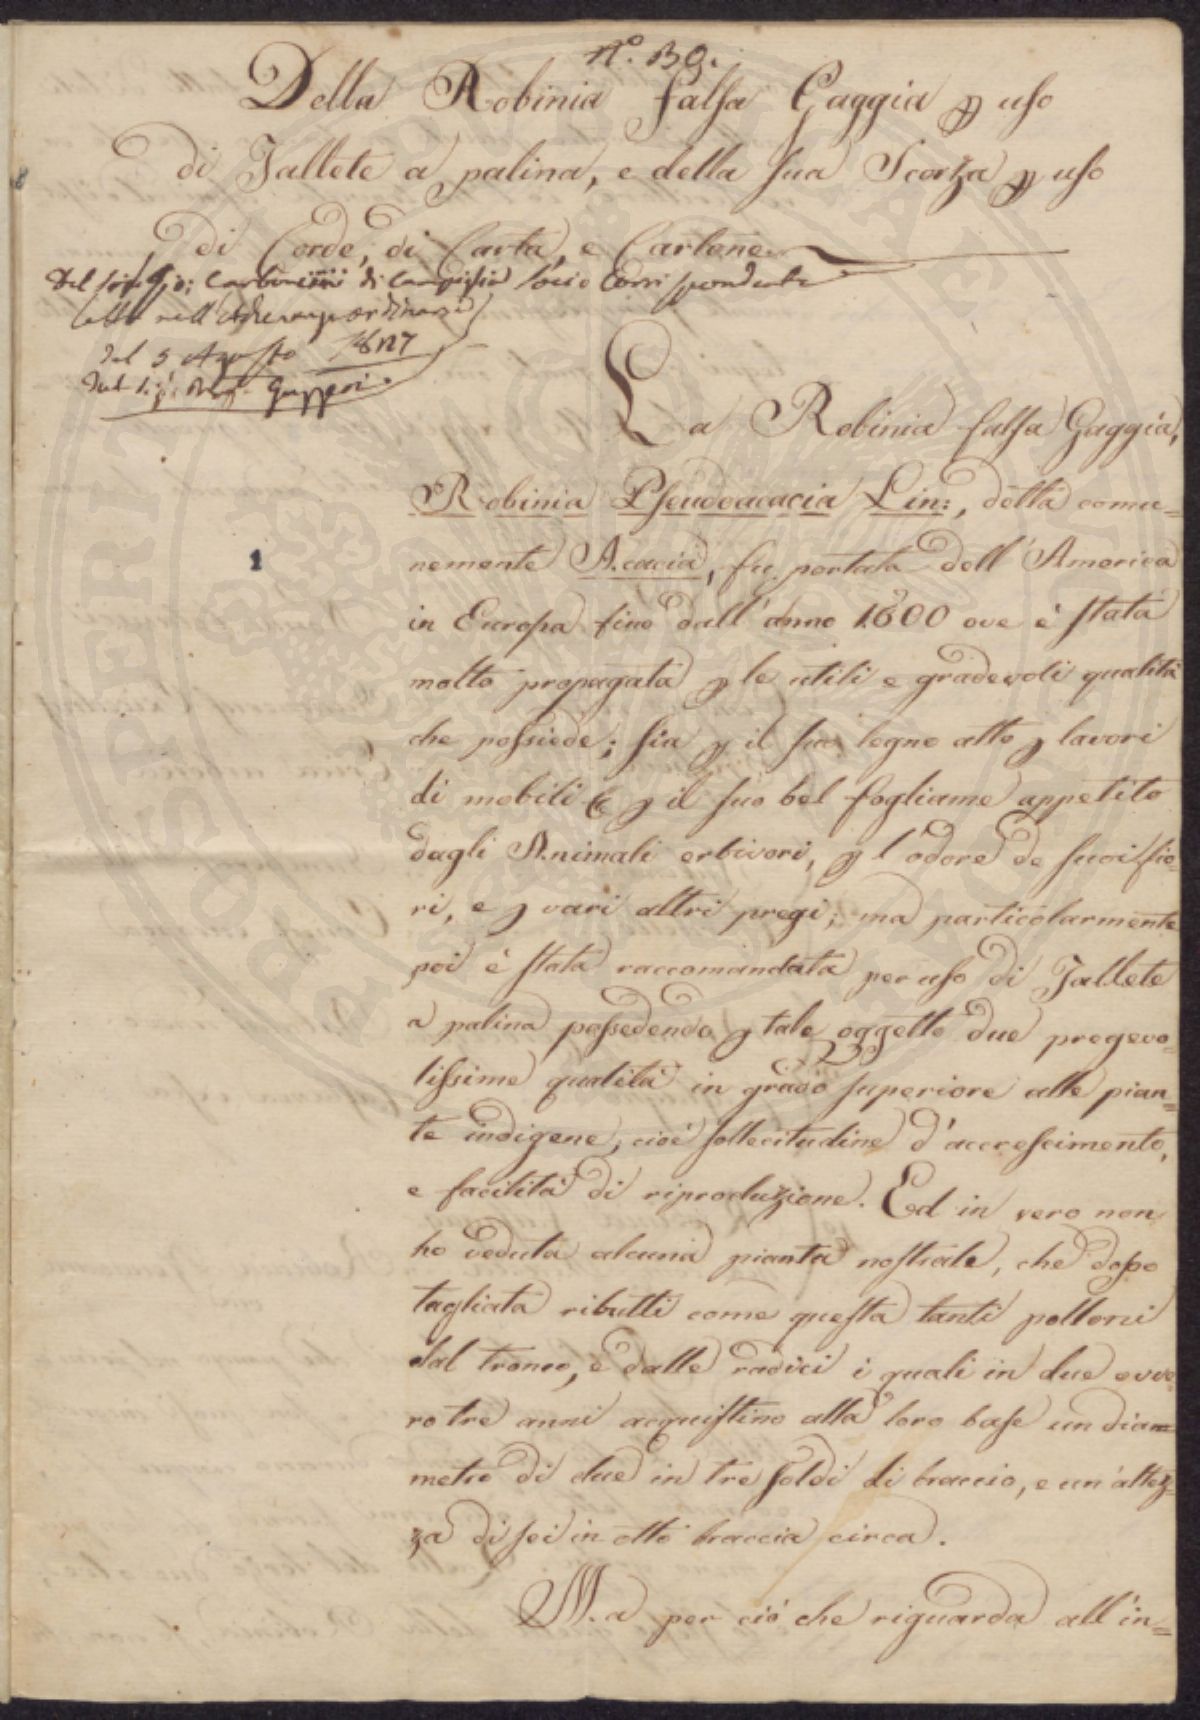 n.º 30.
Della Robinia falsa Gaggia p uso
di Tallete a palina, e della sua Scorza p uso
di Corde, di Carta, e Cartone.
Del Sig. di Campiglia Socio Corrispondente
letta nell'Adunanza ordinaria
del 5 Agosto 1827
dal Sig.
La Robinia falsa Gaggia,
Robinia Pseudoacacia Lin:, detta comu=
nemente Acacia, fu portata dell'America
in Europa fino dall'anno 1600 ove è stata
molto propagata p le utili e gradevoli qualità
che possiede; sia p il suo legno atto p lavori
di mobili &c p il suo bel fogliame appetito
dagli Animali erbivori, p l'odore de suoi fio=
ri, e p vari altri pregi; ma particolarmente
poi è stata raccomandata per uso di Tallete
a palina possedendo p tale oggetto due pregevo=
lissime qualità in grado superiore alle pian=
te indigene, cioè sollecitudine d'accrescimento,
e facilità di riproduzione. Ed in vero non
ho veduta alcuna pianta nostrale, che dopo
tagliata ributti come questa tanti polloni
dal tronco, e dalle radici i quali in due ovve=
ro tre anni acquistino alla loro base un dia=
metro di due in tre soldi di braccio, e un'altez=
za di sei in otto braccia circa.
Ma per ciò che riguarda all'in=
1